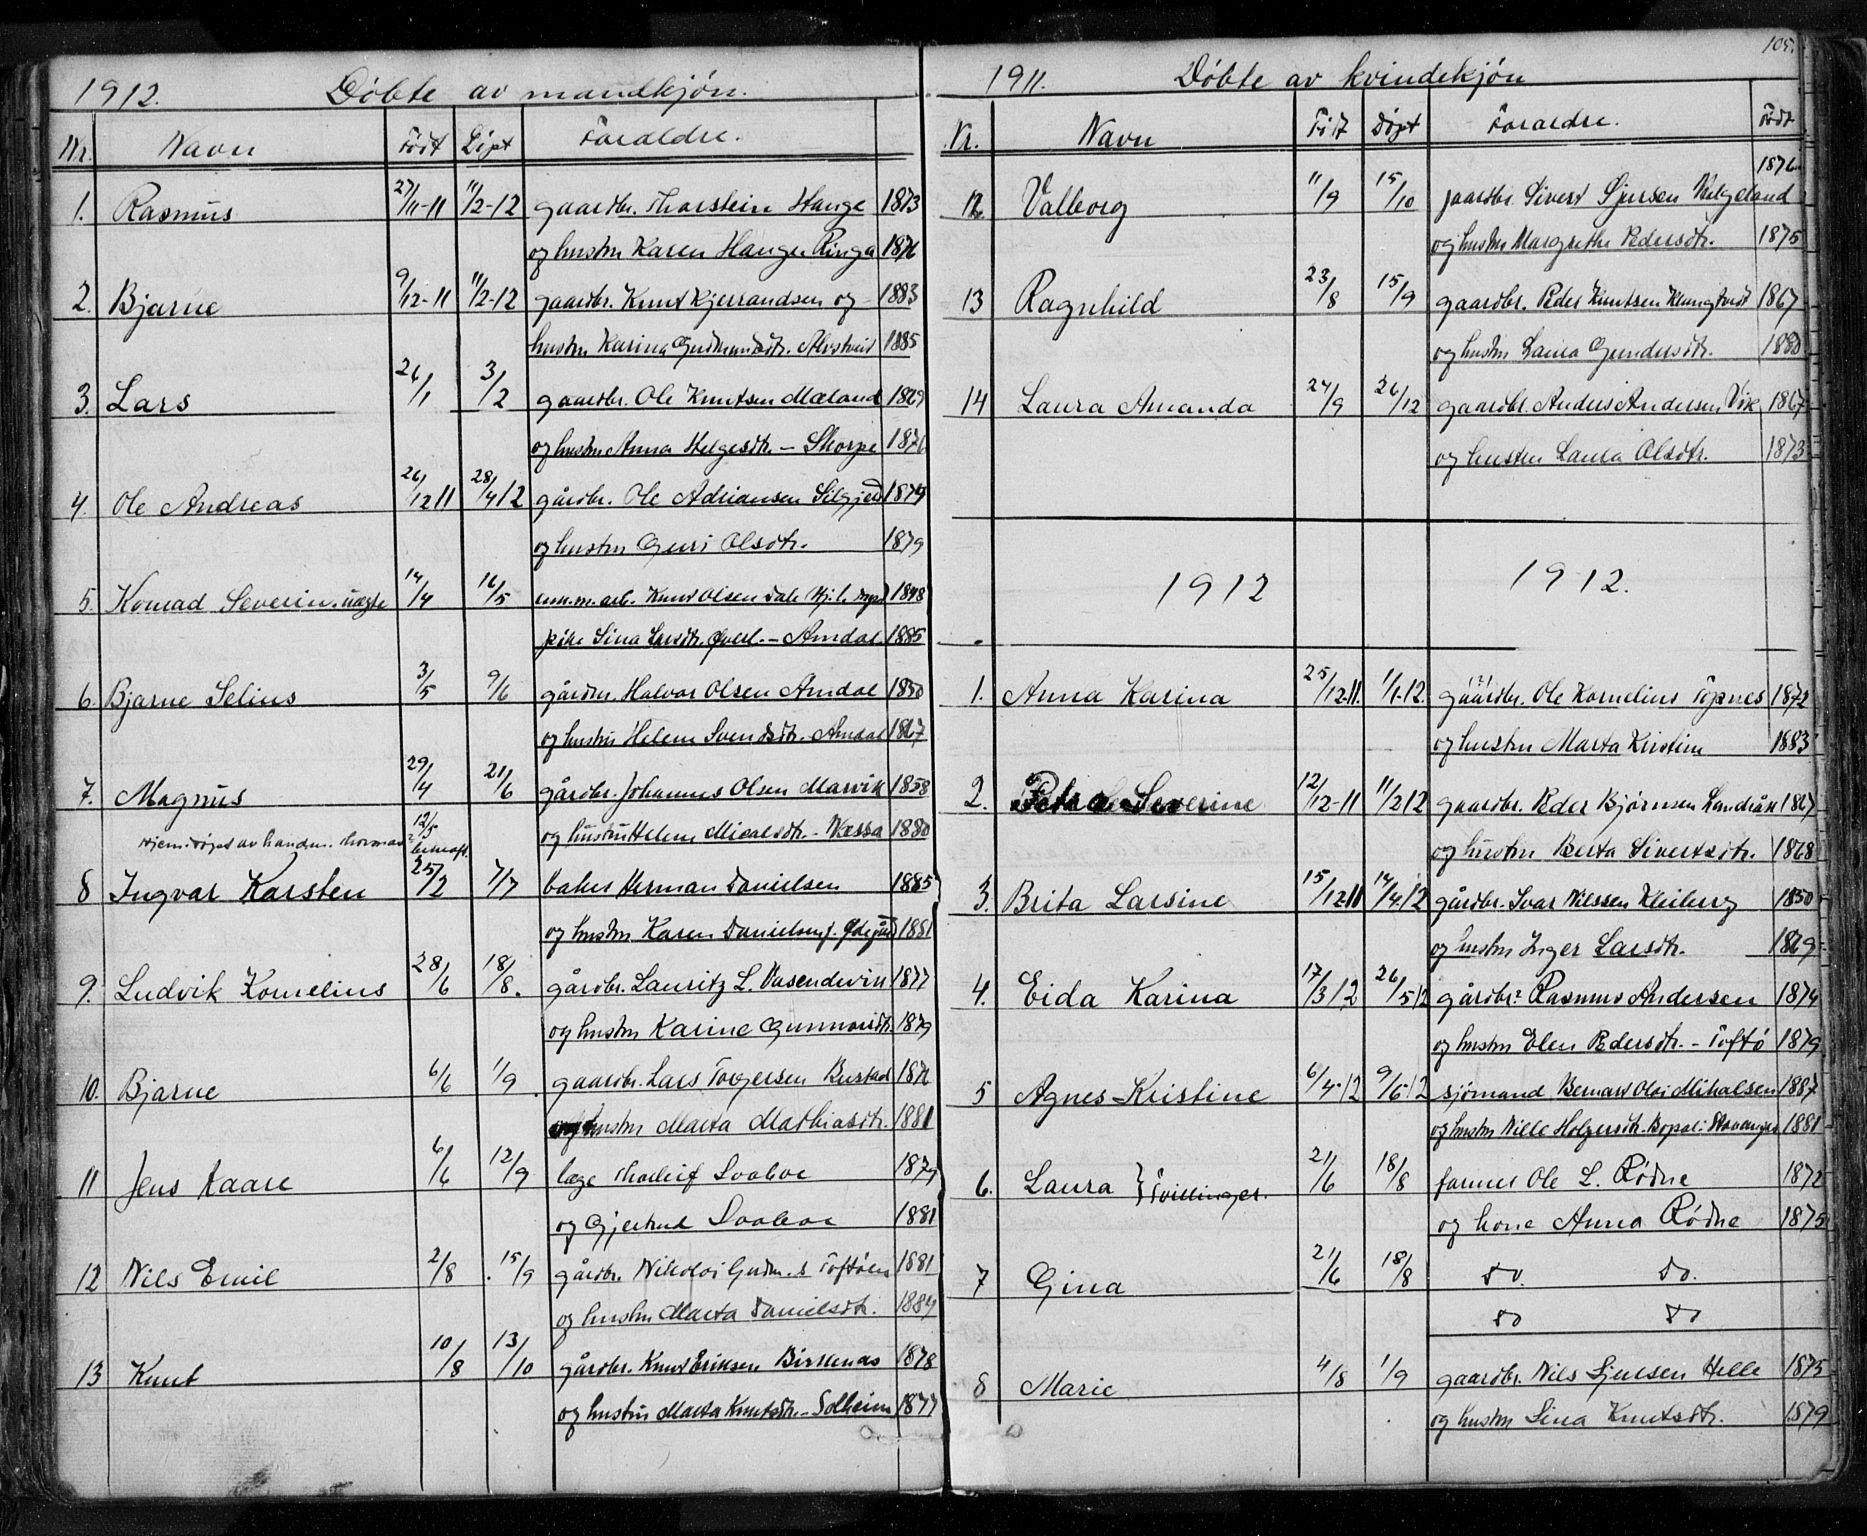 1912. Døbte av mandkjøn.
Nr. Navn Født Døpt Foraldre.
1. Rasmus 27/11-11 11/2-12 gaardbr. Thorstein Hauge 1873
og hustru Karen Hauge Ringa 1876
2. Bjarne 9/12-11 11/2-12 gaardbr. Knut Kjerrandsen og 1883
hustru Karina Gudmundsdtr. Alvstveit 1885
3. Lars 26/1 3/2 gaardbr. Ole Knutsen Mæland 1869
og hustru Anna Helgesdtr. - Skorpe 1876
4. Ole Andreas 26/12 11 28/4 12 gårdbr. Ole Adriansen 1879
og hustru Guri Olsdtr. 1879
5. Konrad Severin. uægte 14/4 16/5 arb. Knut Olsen Dale 1848
pike Sina Larsdtr. - Amdal 1885
6. Bjarne Selius 3/5 9/6 gårdm. Halvor Olsen Amdal 1850
og hustru Helene Svendsdtr. Amdal 1867
7. Magnus 29/4 21/6 gårdbr. Johannes Olsen Marvik 1858
hjemdøpt av handm. 12/5
og hustru Helene Micalsdtr. - Vassa 1880
8 Ingvar Karsten 25/2 7/7 baker Herman Danielsen 1885
og hustru Karen Danielsen f. Ødegård 1881
9. Ludvik Kornelius 28/6 18/8. gårdbr. Lauritz L. Vasendevin 1877
og hustru Karine Gunnarsdtr. 1879
10. Bjarne 6/6 1/9 gaardbr. Lars Torgersen Bustad 1876
og hustru Marta Mathiasdtr. 1881
11 Jens Kaare 6/6 12/9 læge Thorleif Svaboe 1879
og Gjertrud Svaboe 1881
12 Nils Emil 2/8 15/9 gårdbr. Nikolai Gudm.s Toftøen 1881
og hustru Marta Danielsdtr. 1884
13 Knut 10/8 13/10 gårdbr. Knut Eriksen Birkenæs 1878
og hustru Marta Knutsdtr. - Solheim 1877
105.
1911. Døbte av kvindekjøn
Nr. Navn Født Døpt Foraldre. Født
12 Valborg 11/9 15/10 gaardbr. Sivert Sjursen Helgeland 1876
og hustru Margrethe Pedersdtr. 1875
13 Ragnhild 23/8 15/9 gaardbr. Peder Knutsen Klungtveit 1867
og hustru Laura Gundersdtr. 1880
14 Laura Amanda 24/9 26/12 gaardbr. Anders Andersen Vik 1867
og hustru Laura Olsdtr. 1873
1912 1912.
1. Anna Karina 25/12 11. 1/1-12. gaardbr. Ole Kornelius Topnes 1872
og hustru Marta Kristine 1883
2. Petra Severine 12/12-11 11/2 12 gaardbr. Peder Bjørnsen Landråk 1867
og hustru Berta Sivertsdtr. 1868
3. Brita Larsine 15/12 11 14/4 12 gårdbr. Ivar Nilssen Kleiberg 1850
og hustru Inger Larsdtr. 1869
4. Eida Karina 17/3 12 26/5 12 gårdbr. Rasmus Andersen 1874
og hustru Elen Pedersdtr. - Toftø 1879
5 Agnes Kristine 6/4-12 9/6 12 sjømand Bernart Olai Mikalsen 1887
og hustru Nille Holgersdtr. Bopæl: Stavanger 1881
6. Laura } Tvillinger. 21/6 18/8 farmer Ole L. Rødne 1872
og kone Anna Rødne 1875
7 Gina 21/6 18/8 do. do.
do do
8 Marie 4/8 1/9 gaardbr. Nils Sjursen Helle 1875
og hustru Sina Knutsdtr. 1879